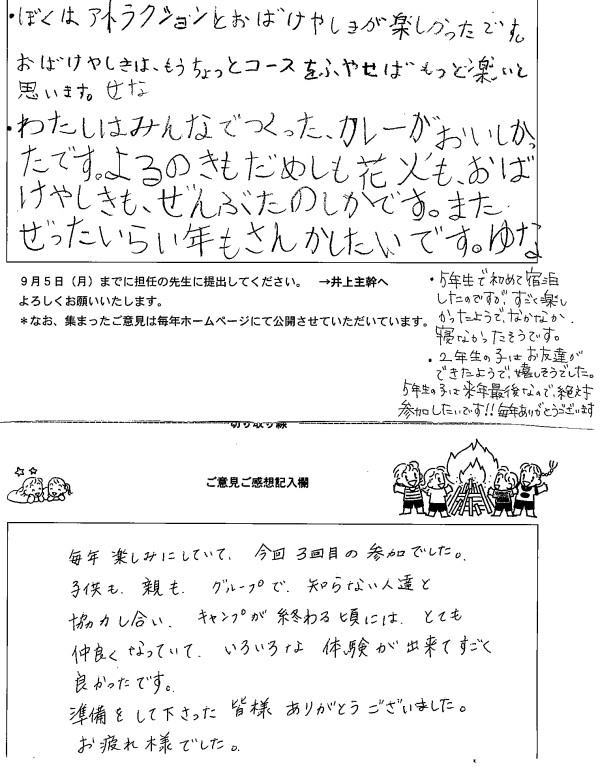 ・ぼくはアトラクションとおばけやしきが楽しかったです。
おばけやしきは、もうちょっとコースをふやせばもっと楽いと
思います。せな
・わたしはみんなでつくった、カレーがおいしかっ
たです。よるのきもだめしも花火も、おば
けやしきも、ぜんぶたのしかです。また
ぜったいらい年もさんかしたいです。ゆな
9月5日（月）までに担任の先生に提出してください。 →井上主幹へ
よろしくお願いいたします。
＊なお、集まったご意見は毎年ホームページにて公開させていただいています。
・5年生で初めて宿泊
したのですが、すごく楽し
かったようで、なかなか
寝なかったそうです。
・2年生の子はお友達が
できたようで、嬉しそうでした。
5年生の子は来年最後なので、絶対
参加したいです!!毎年ありがとうございます
切り取り線
ご意見ご感想記入欄
毎年楽しみにしていて、今回3回目の参加でした。
子供も、親も、グループで、知らない人達と
協力し合い、キャンプが終わる頃には、とても
仲良くなっていて、いろいろな体験が出来てすごく
良かったです。
準備をして下さった皆様ありがとうございました。
お疲れ様でした。